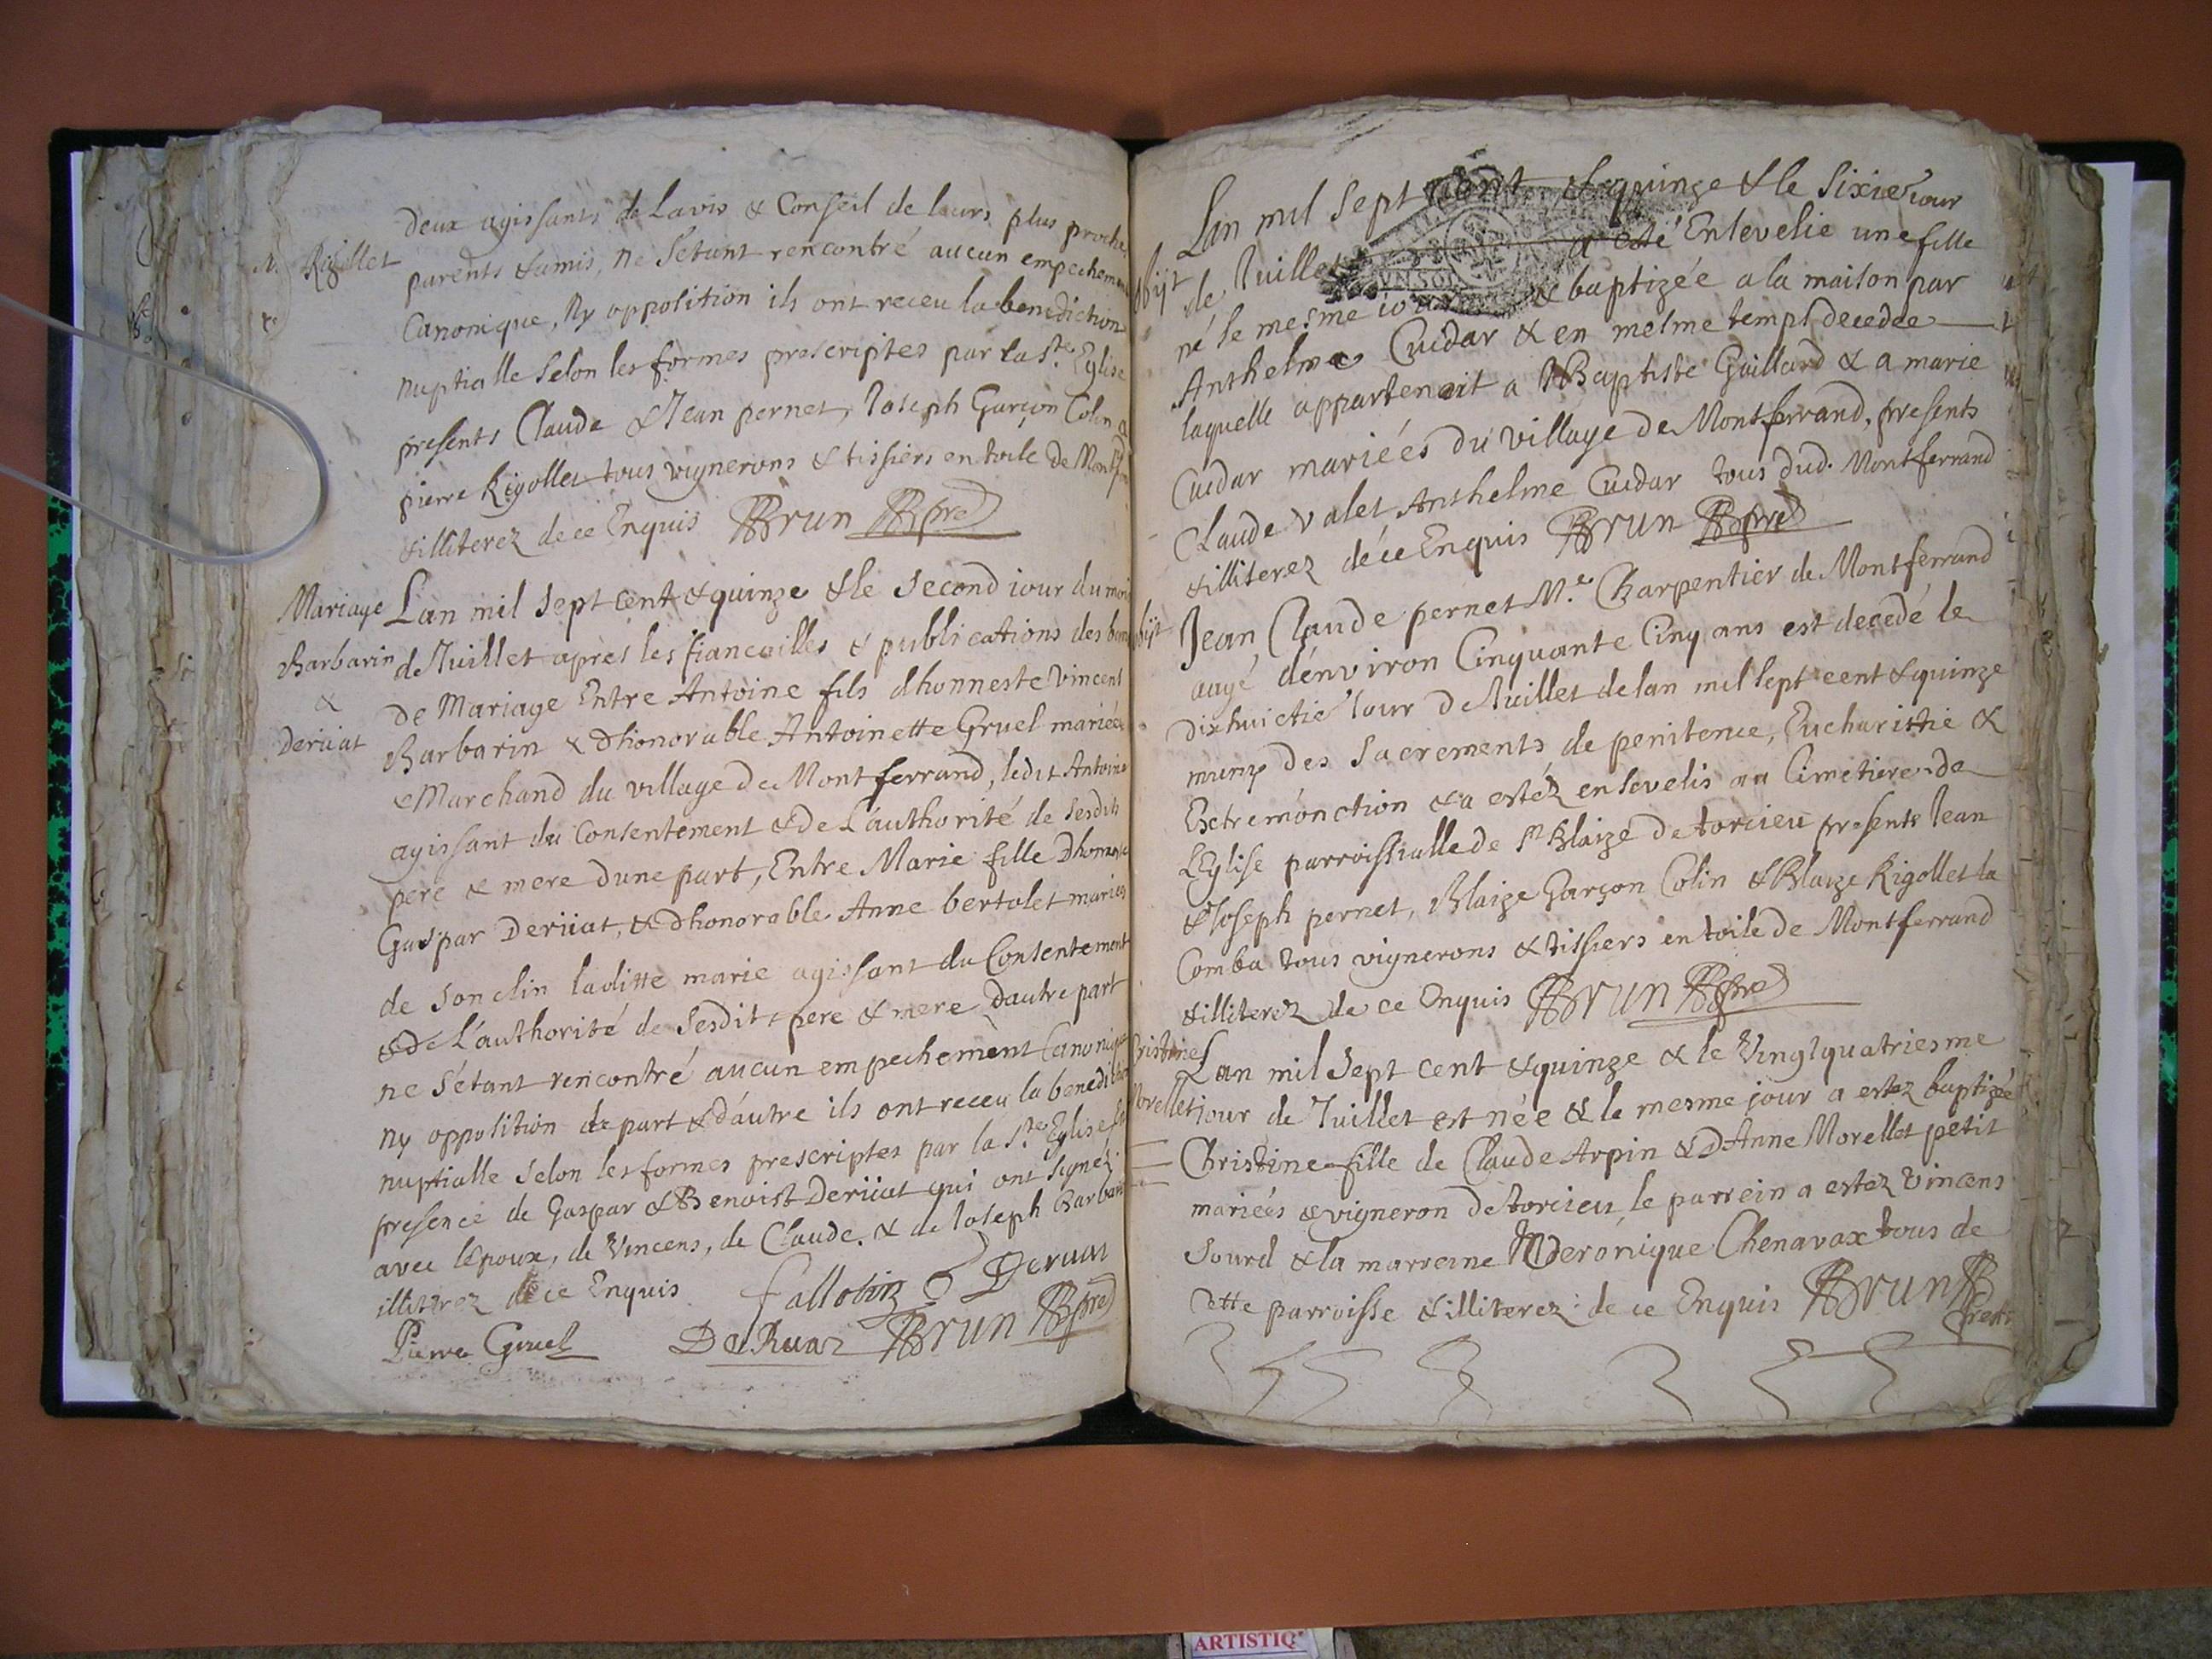 deux agissants de Lavis & Conseil de leurs plus proche
M. Rigollet
parents & amis, ne s'étant rencontré aucun empechement
Canonique, Ny opposition ils ont receu la benediction
nuptialle Selon les formes prescriptes par la Ste Eglise
presents Claude & Jean pernet, Joseph Garçon Colin &
pierre Rigollet tous vignerons & tissiers en toile de Montfer
& illiterez de ce Enquis Brun pre
Mariage
Barbarin
&
Deruat
Lan mil Sept cent & quinze & le Second iour du moi
de Juillet apres les fiancailles & publications des ban
de Mariage Entre Antoine fils dhonneste Vincent
Barbarin & dhonorable Antoinette Gruel mariée
& Marchand du village de Montferrand, ledit Antoine
agissant du Consentement & de L'authorité de Sesdits
pere & mere dune part, Entre Marie fille Dhonneste
Gaspar Deruat, & dhonorable Anne bertolet mariés
de Sonclin laditte marie agissant du Consentement
& de L'authorité de Sesdits pere & mere Dautre part
ne S'étant rencontré aucun empechement Canonique
ny opposition de part & d'autre ils ont receu la benediction
nuptialle Selon les formes prescriptes par la Ste Eglise
presence de Gaspar & Benoist Deruat qui ont Signéz
avec lépoux, de Vincens, de Claude & de Joseph Barbarin
illiterez de ce Enquis Deruat
Pierre Gruel DeRuaz Brun pre
obijt
Lan mil Sept Cent & quinze & le Sixie iour
de Juillet a esté Ensevelie une fille
né le mesme iour & baptizée a la maison par
Anthelme Cuidar & en mesme temps decedée
laquelle appartenait a Baptiste Gaillard & a marie
Cuidar mariées du village de Montferrand, presents
Claude valet Anthelme Cuidar tous dud. Montferrand
& illiterez de ce Enquis Brun pre
obijt
Jean Claude pernet Me Charpentier de Montferrand
aagé dénviron Cinquante Cinq ans est decedé le
dixhuictie iour De Juillet de lan mil sept cent & quinze
muny des Sacrements de penitence, Eucharistie &
Extremonction & a estéz ensevelis au Cimetiere de
LEglise parroissialle de St Blaize de torcieu presents Jean
& Joseph pernet, Blaize Garçon Colin & Blaize Rigollet la
Comba tous vignerons & tissiers en toile de Montferrand
& illiterez de ce Enquis Brun pre
Cristine
Morellet
Lan mil Sept cent & quinze & le Vingtquatriesme
jour de Juillet est née & le mesme jour a estez baptizée
Christine fille de Claude Arpin & D'Anne Morellet petit
mariées & vigneron de torcieu, le parrein a estez Vincens
Sourd & la marreine Veronique Chenavax tous de
Cette parroisse & illiterez de ce Enquis Brun
Prestre
ARTISTIQ